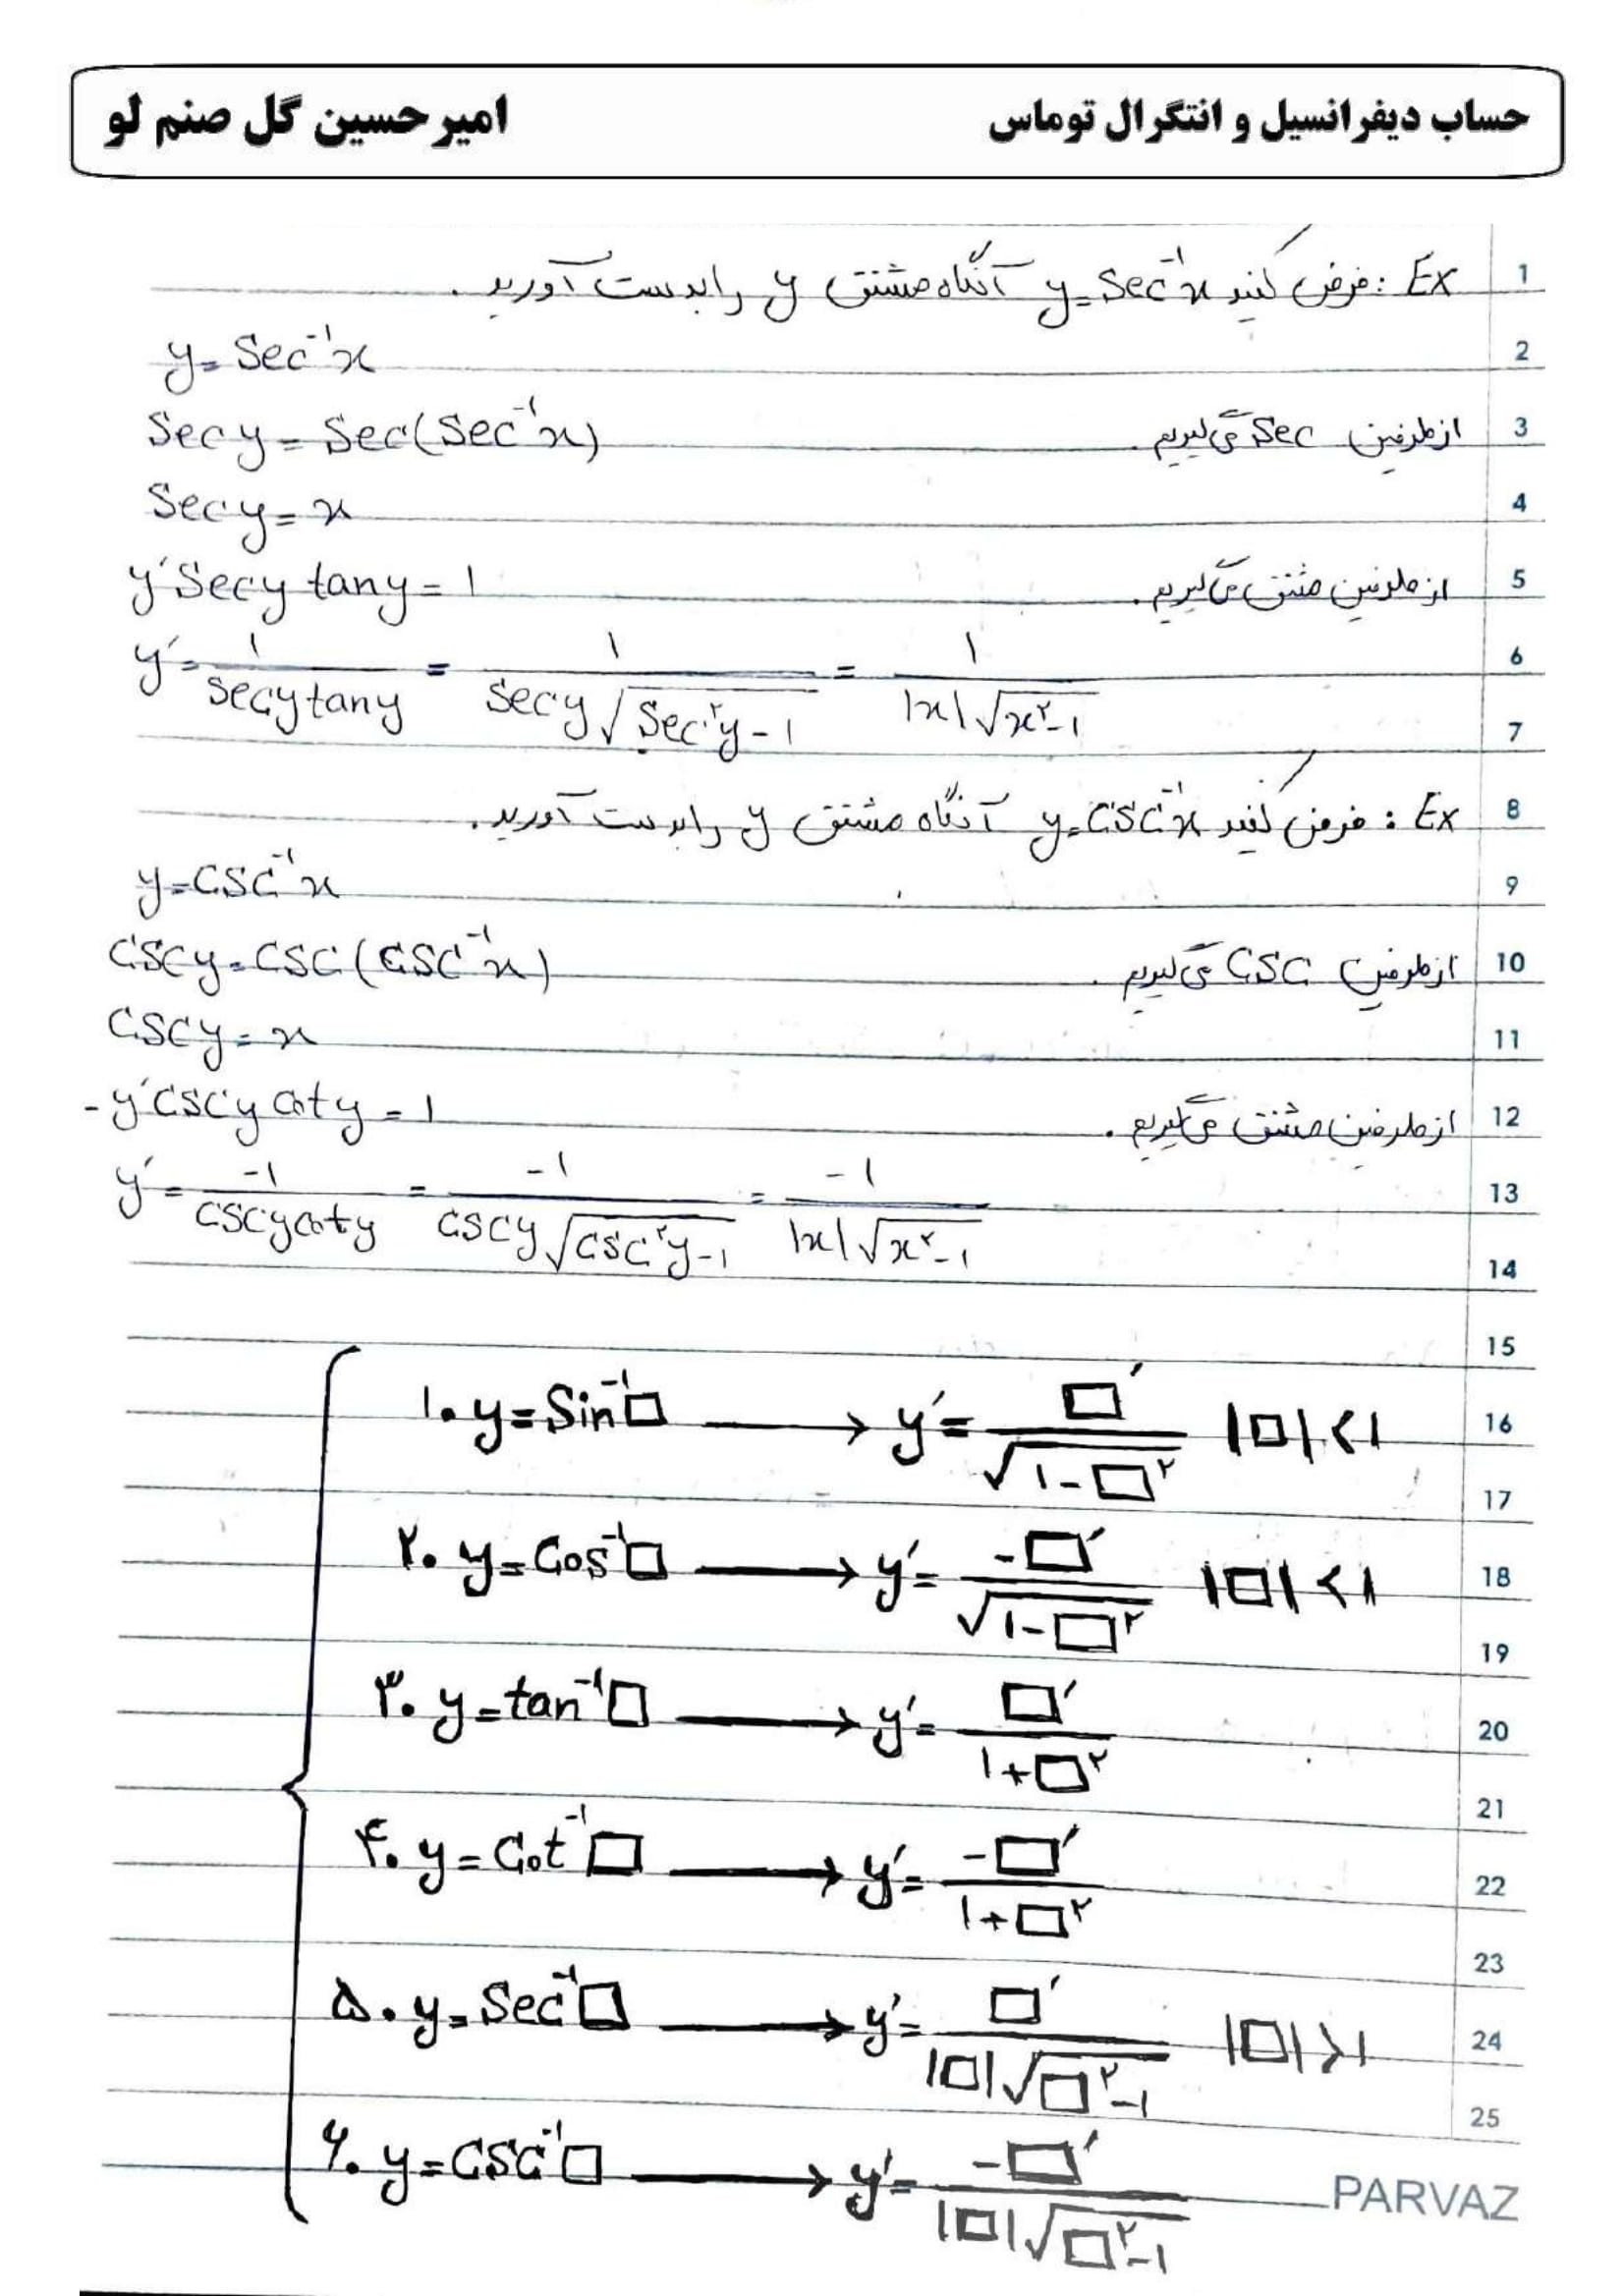 حساب دیفرانسیل و انتگرال توماس
امیرحسین گل صنم لو
1 Ex : فرض کنید y = Sec⁻¹x آنگاه مشتق y را بدست آورید .
2 y = Sec⁻¹x
3 از طرفین Sec می‌گیریم . Sec y = Sec(Sec⁻¹x)
4 Sec y = x
5 از طرفین مشتق می‌گیریم . y′ Sec y tan y = 1
6 y′ = 1/(Sec y tan y) = 1/(Sec y √(Sec^۲ y - 1)) = 1/(|x|√(x^۲ - 1))
7
8 Ex : فرض کنید y = CSC⁻¹x آنگاه مشتق y را بدست آورید .
9 y = CSC⁻¹x
10 از طرفین CSC می‌گیریم . CSC y = CSC(CSC⁻¹x)
11 CSC y = x
12 از طرفین مشتق می‌گیریم . - y′ CSC y Cot y = 1
13 y′ = -1/(CSC y Cot y) = -1/(CSC y √(CSC^۲ y - 1)) = -1/(|x|√(x^۲ - 1))
14
15
16 ۱. y = Sin⁻¹□ → y′ = □′/√(1 - □^۲) |□| < 1
17
18 ۲. y = Cos⁻¹□ → y′ = -□′/√(1 - □^۲) |□| < 1
19
20 ۳. y = tan⁻¹□ → y′ = □′/(1 + □^۲)
21
22 ۴. y = Cot⁻¹□ → y′ = -□′/(1 + □^۲)
23
24 ۵. y = Sec⁻¹□ → y′ = □′/(|□|√(□^۲ - 1)) |□| > 1
25
۶. y = CSC⁻¹□ → y′ = -□′/(|□|√(□^۲ - 1))
PARVAZ